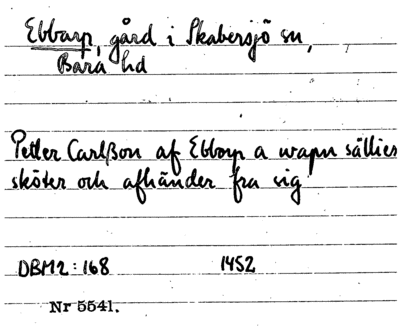 Ebbarp, gård i Skabersjö sn,
Bara hd
Petler Carlßon af Ebborp a wapn sällier
sköter och afhänder fra sig
DBM2:168 1452
Nr 5541.